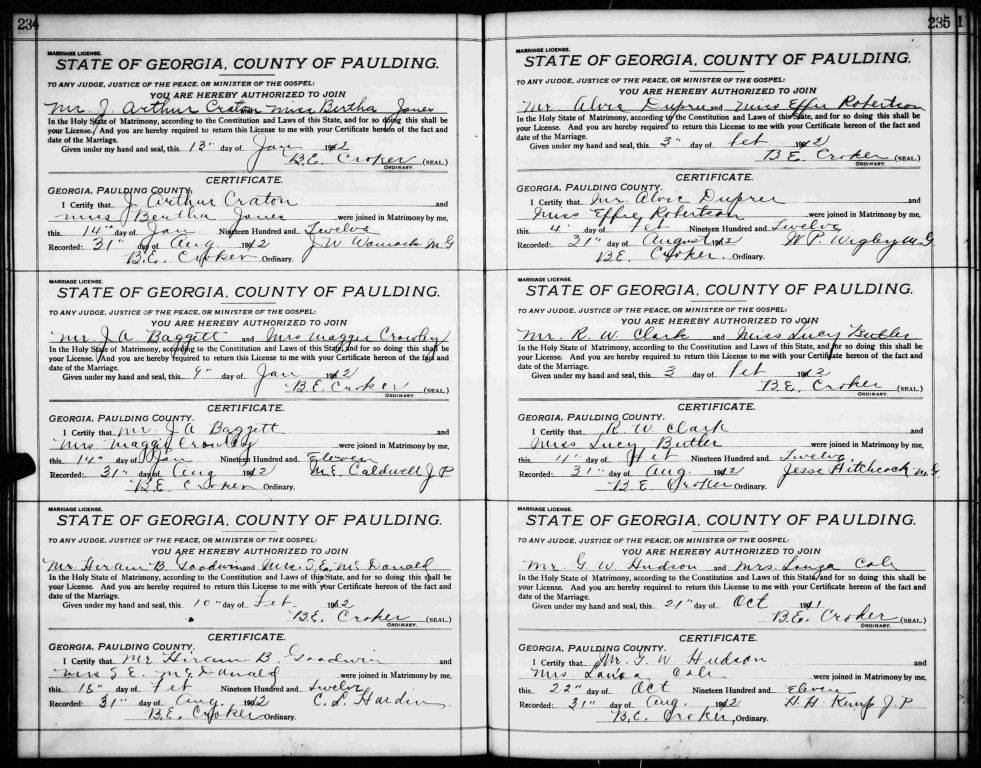 234
MARRIAGE LICENSE.
STATE OF GEORGIA, COUNTY OF PAULDING.
TO ANY JUDGE, JUSTICE OF THE PEACE, OR MINISTER OF THE GOSPEL:
YOU ARE HEREBY AUTHORIZED TO JOIN
Mr. J. Arthur Craton Miss Bertha Jones
In the Holy State of Matrimony, according to the Constitution and Laws of this State, and for so doing this shall be
your License. And you are hereby required to return this License to me with your Certificate hereon of the fact and
date of the Marriage.
Given under my hand and seal, this 13" day of Jan 1912
B.E. Croker (SEAL.)
ORDINARY.
CERTIFICATE.
GEORGIA, PAULDING COUNTY.
I Certify that J. Arthur Craton and
Miss Bertha Jones were joined in Matrimony by me,
this 14" day of Jan Nineteen Hundred and Twelve
Recorded: 31" day of Aug. 1912 J W Womack M G
B.E. Croker Ordinary.
MARRIAGE LICENSE.
STATE OF GEORGIA, COUNTY OF PAULDING.
TO ANY JUDGE, JUSTICE OF THE PEACE, OR MINISTER OF THE GOSPEL:
YOU ARE HEREBY AUTHORIZED TO JOIN
Mr. J A Baggett and Mrs Maggie Crowley
In the Holy State of Matrimony, according to the Constitution and Laws of this State, and for so doing this shall be
your License. And you are hereby required to return this License to me with your Certificate hereon of the fact and
date of the Marriage.
Given under my hand and seal, this 9" day of Jan 1912
B.E. Croker (SEAL)
ORDINARY.
CERTIFICATE.
GEORGIA, PAULDING COUNTY.
I Certify that Mr. J A Baggett and
Mrs Maggie Crowley were joined in Matrimony by me,
this 14" day of Jan Nineteen Hundred and Eleven
Recorded: 31" day of Aug 1912 M.E. Caldwell J P
B.E. Croker Ordinary.
MARRIAGE LICENSE.
STATE OF GEORGIA, COUNTY OF PAULDING.
TO ANY JUDGE, JUSTICE OF THE PEACE, OR MINISTER OF THE GOSPEL:
YOU ARE HEREBY AUTHORIZED TO JOIN
Mr. Hiram B. Goodwin and Mrs. S.E. McDonald
In the Holy State of Matrimony, according to the Constitution and Laws of this State, and for so doing this shall be
your License. And you are hereby required to return this License to me with your Certificate hereon of the fact and
date of the Marriage.
Given under my hand and seal, this 10" day of Feb. 1912
B.E. Croker (SEAL)
ORDINARY.
CERTIFICATE.
GEORGIA, PAULDING COUNTY.
I Certify that Mr Hiram B. Goodwin and
Mrs S E. McDonald were joined in Matrimony by me,
this 15" day of Feb Nineteen Hundred and Twelve
Recorded: 31" day of Aug. 1912 C. L. Hardin
B.E. Croker Ordinary.
235
MARRIAGE LICENSE.
STATE OF GEORGIA, COUNTY OF PAULDING.
TO ANY JUDGE, JUSTICE OF THE PEACE, OR MINISTER OF THE GOSPEL:
YOU ARE HEREBY AUTHORIZED TO JOIN
Mr. Alvie Dupree and Miss Effie Robertson
In the Holy State of Matrimony, according to the Constitution and Laws of this State, and for so doing this shall be
your License. And you are hereby required to return this License to me with your Certificate hereon of the fact and
date of the Marriage.
Given under my hand and seal, this 3" day of Feb 1912
B E. Croker (SEAL.)
ORDINARY.
CERTIFICATE.
GEORGIA, PAULDING COUNTY.
I Certify that Mr. Alvie Dupree and
Miss Effie Robertson were joined in Matrimony by me,
this 4 day of Feb Nineteen Hundred and Twelve
Recorded: 31" day of August 1912 W P. Wigley M.G.
B.E. Croker. Ordinary.
MARRIAGE LICENSE.
STATE OF GEORGIA, COUNTY OF PAULDING.
TO ANY JUDGE, JUSTICE OF THE PEACE, OR MINISTER OF THE GOSPEL:
YOU ARE HEREBY AUTHORIZED TO JOIN
Mr. R. W. Clark and Miss Lucy Butler
In the Holy State of Matrimony, according to the Constitution and Laws of this State, and for so doing this shall be
your License. And you are hereby required to return this License to me with your Certificate hereon of the fact and
date of the Marriage.
Given under my hand and seal, this 3 day of Feb
B.E. Croker (SEAL.)
ORDINARY.
CERTIFICATE.
GEORGIA, PAULDING COUNTY.
I Certify that R. W Clark and
Miss Lucy Butler were joined in Matrimony by me,
this 4" day of Feb Nineteen Hundred and Twelve.
Recorded: 31" day of Aug. 1912 Jesse Hitchcock M.G.
B. E Croker Ordinary.
MARRIAGE LICENSE.
STATE OF GEORGIA, COUNTY OF PAULDING.
TO ANY JUDGE, JUSTICE OF THE PEACE, OR MINISTER OF THE GOSPEL:
YOU ARE HEREBY AUTHORIZED TO JOIN
Mr. G. W. Hudson and Mrs. Cole
In the Holy State of Matrimony, according to the Constitution and Laws of this State, and for so doing this shall be
your License. And you are hereby required to return this License to me with your Certificate hereon of the fact and
date of the Marriage.
Given under my hand and seal, this 21" day of Oct 1911
B.E. Croker (SEAL.)
ORDINARY.
CERTIFICATE.
GEORGIA, PAULDING COUNTY.
I Certify that Mr. G. W. Hudson and
Mrs. Cole were joined in Matrimony by me,
this 22" day of Oct Nineteen Hundred and Eleven
Recorded: 31" day of Aug. 1912 H. H. Kemp J. P
B.E. Croker, Ordinary.